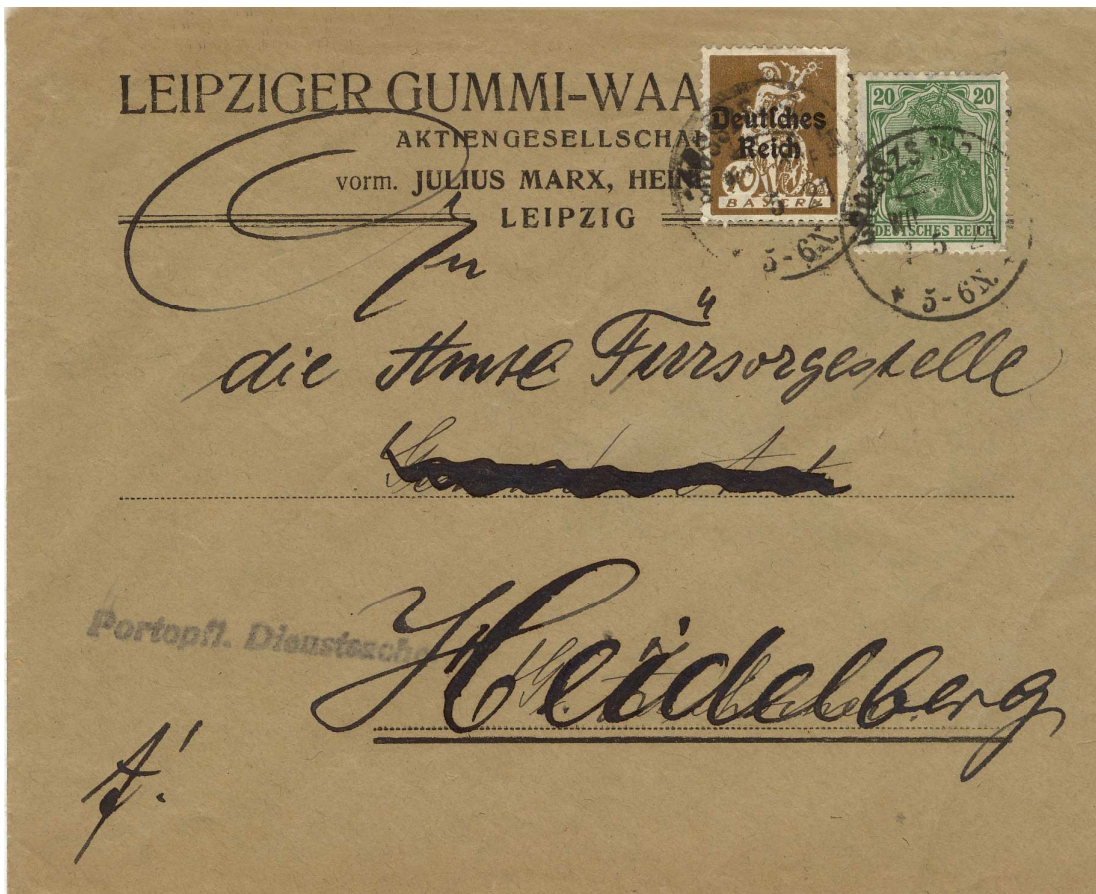 LEIPZIGER GUMMI-WAA
AKTIENGESELLSCHA
vorm. JULIUS MARX, HEIN
LEIPZIG
Deutsches
Reich
40
BAYERN
20 20
DEUTSCHES REICH
5-6N
5-6N
An
die Amts Fürsorgestelle
Heidelberg
Portopfl. Dienstsache